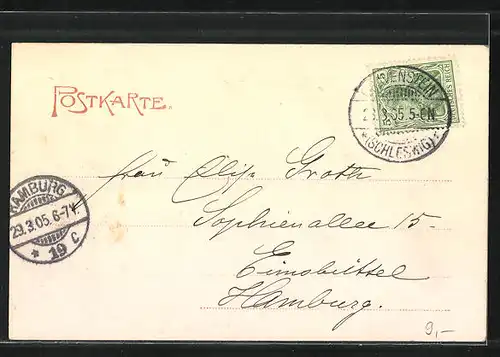 POSTKARTE.
28.3.05.5-6N
*(SCHLESWIG)*
Frau Elise Groth
Sophienallee 15.
Eimsbüttel
Hamburg.
HAMBURG
29.3.05.6-7V.
* 19 c
9,-